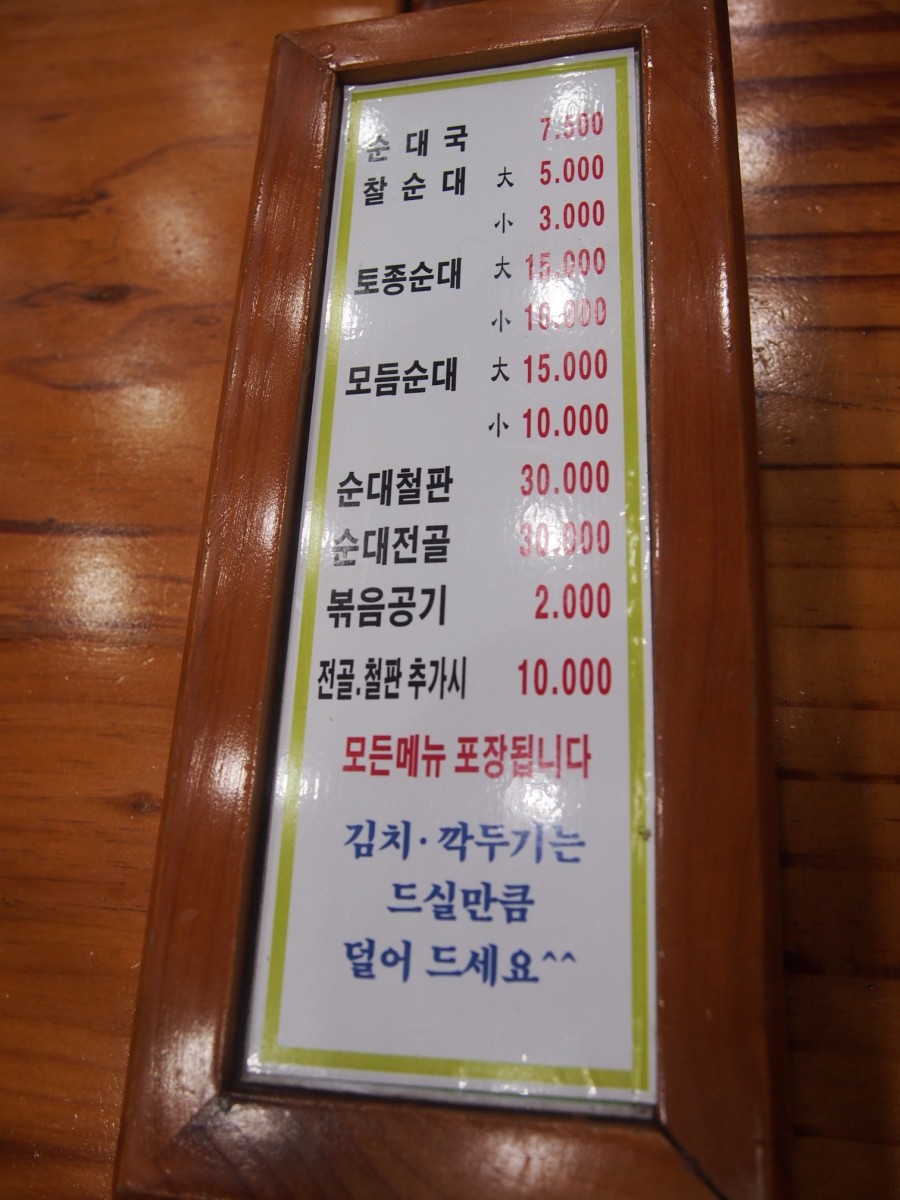 순대국 7.500
찰순대 大 5.000
小 3.000
토종순대 大 15.000
小 10.000
모듬순대 大 15.000
小 10.000
순대철판 30.000
순대전골 30.000
볶음공기 2.000
전골.철판 추가시 10.000
모든메뉴 포장됩니다
김치·깍두기는
드실만큼
덜어 드세요^^